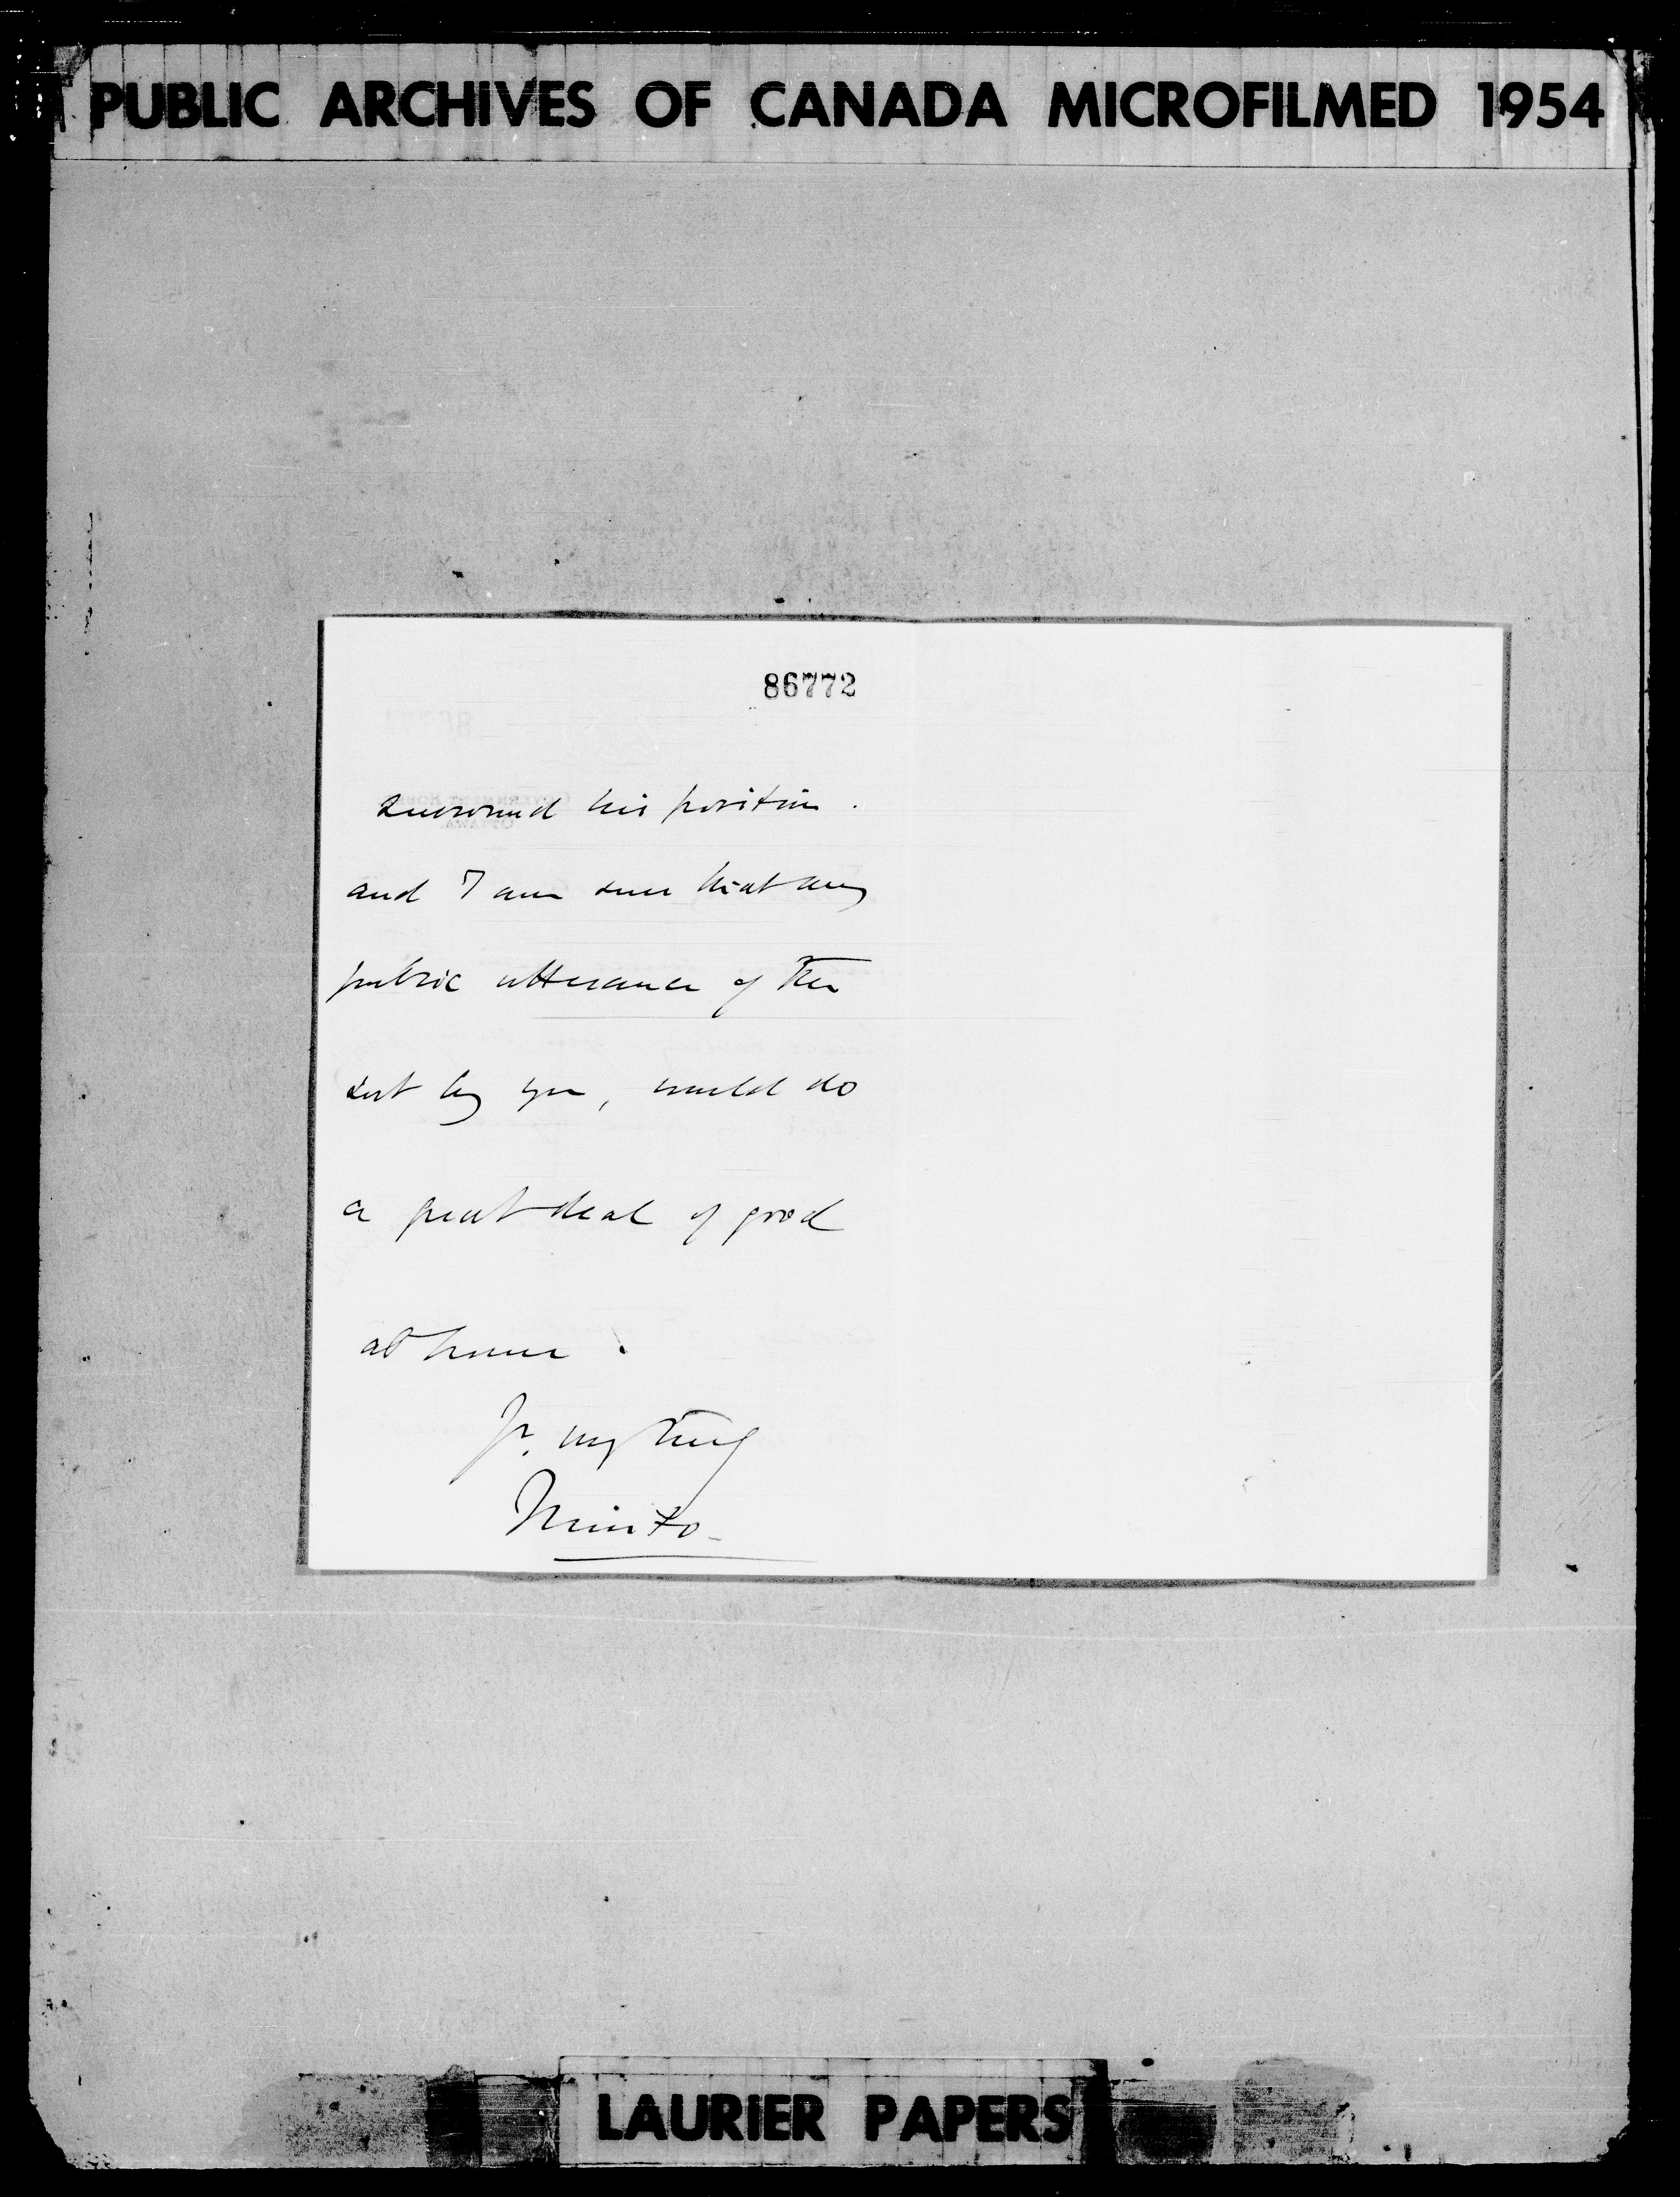 PUBLIC ARCHIVES OF CANADA MICROFILMED 1954
86772
surround his position.
and I am sure that any
public utterance of the
sort by you, would do
a great deal of good
at home.
Yr. very truly
Minto
LAURIER PAPERS